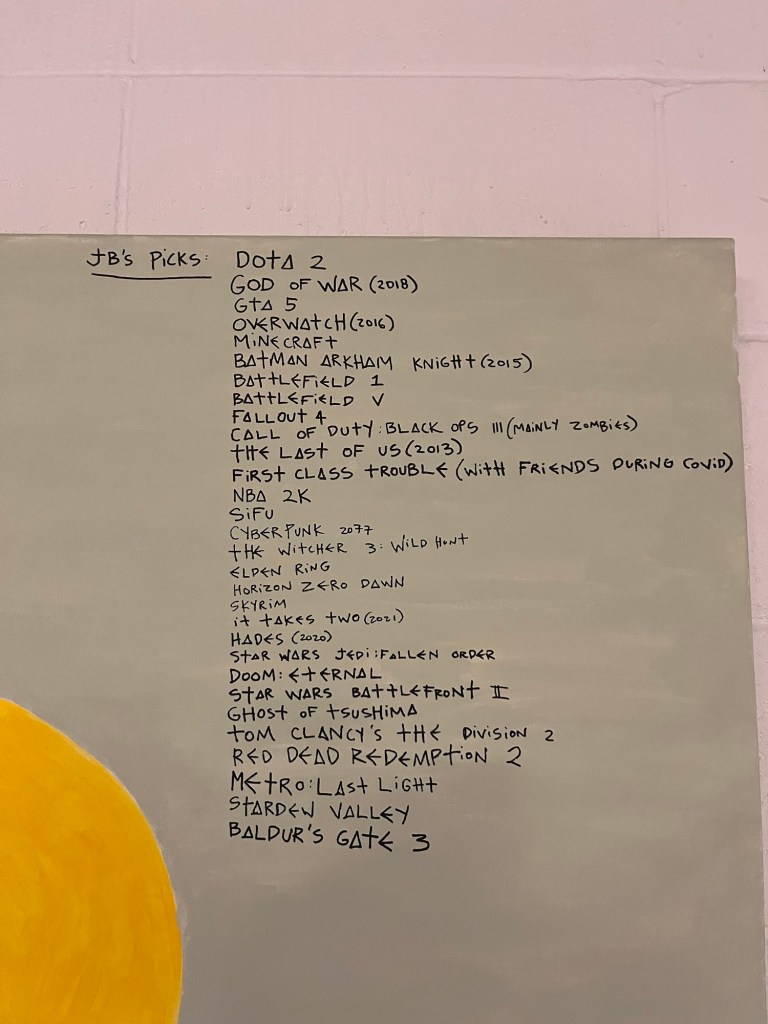 JB'S PICKS: DOTA 2
GOD OF WAR (2018)
GTA 5
OVERWATCH (2016)
MINECRAFT
BATMAN ARKHAM KNIGHT (2015)
BATTLEFIELD 1
BATTLEFIELD V
FALLOUT 4
CALL OF DUTY: BLACK OPS III (MAINLY ZOMBIES)
THE LAST OF US (2013)
FIRST CLASS TROUBLE (WITH FRIENDS DURING COVID)
NBA 2K
SIFU
CYBERPUNK 2077
THE WITCHER 3: WILD HUNT
ELDEN RING
HORIZON ZERO DAWN
SKYRIM
IT TAKES TWO (2021)
HADES (2020)
STAR WARS JEDI: FALLEN ORDER
DOOM: ETERNAL
STAR WARS BATTLEFRONT II
GHOST OF TSUSHIMA
TOM CLANCY'S THE DIVISION 2
RED DEAD REDEMPTION 2
METRO: LAST LIGHT
STARDEW VALLEY
BALDUR'S GATE 3